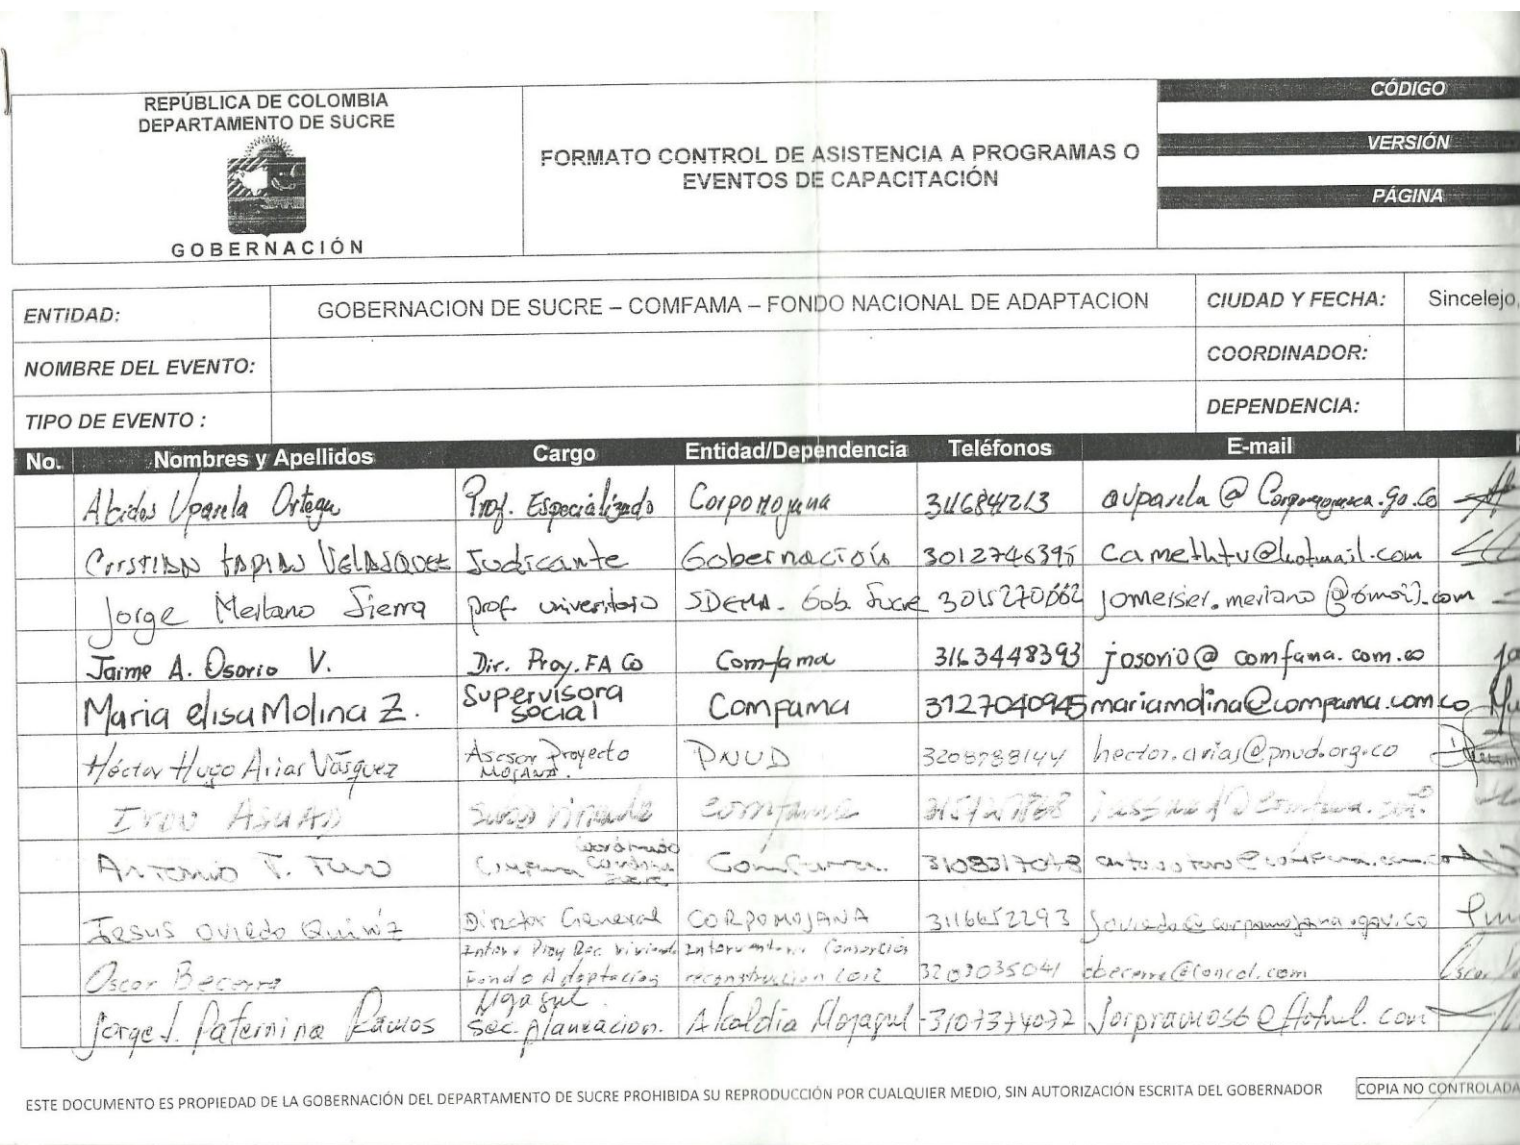 REPÚBLICA DE COLOMBIA
DEPARTAMENTO DE SUCRE
GOBERNACIÓN
FORMATO CONTROL DE ASISTENCIA A PROGRAMAS O
EVENTOS DE CAPACITACIÓN
CÓDIGO
VERSIÓN
PÁGINA
ENTIDAD: GOBERNACION DE SUCRE – COMFAMA – FONDO NACIONAL DE ADAPTACION CIUDAD Y FECHA: Sincelejo,
NOMBRE DEL EVENTO: COORDINADOR:
TIPO DE EVENTO : DEPENDENCIA:
No. Nombres y Apellidos Cargo Entidad/Dependencia Teléfonos E-mail
Uparela Ortega Prof. Especializado Corpomojana 3116841213
TAPIAS VELASQUEZ Judicante Gobernación 3012746395 camethtv@hotmail.com
Jorge Merlano Sierra prof. universitario SDEMA. Gob. Sucre 3015270662
Jaime A. Osorio V. Dir. Proy. FA Co Comfama 3163448393 josorio@comfama.com.co
Maria elisa Molina Z. Supervisora social Compama 3127040945 mariamolina@compama.com.co
Héctor Hugo Arias Vásquez Asesor Proyecto MOJANA. PNUD 3208788144 hector.arias@pnud.org.co
comfama
Antonio T. Comfama
Jesus Oviedo Director General CORPOMOJANA 3116652293
Oscar Becerra Fondo Adaptación reconstruccion 2012 3203035041
Jorge J. Paternina Ramos Sec. planeacion. Alcaldia 3107374072
ESTE DOCUMENTO ES PROPIEDAD DE LA GOBERNACIÓN DEL DEPARTAMENTO DE SUCRE PROHIBIDA SU REPRODUCCIÓN POR CUALQUIER MEDIO, SIN AUTORIZACIÓN ESCRITA DEL GOBERNADOR COPIA NO CONTROLADA